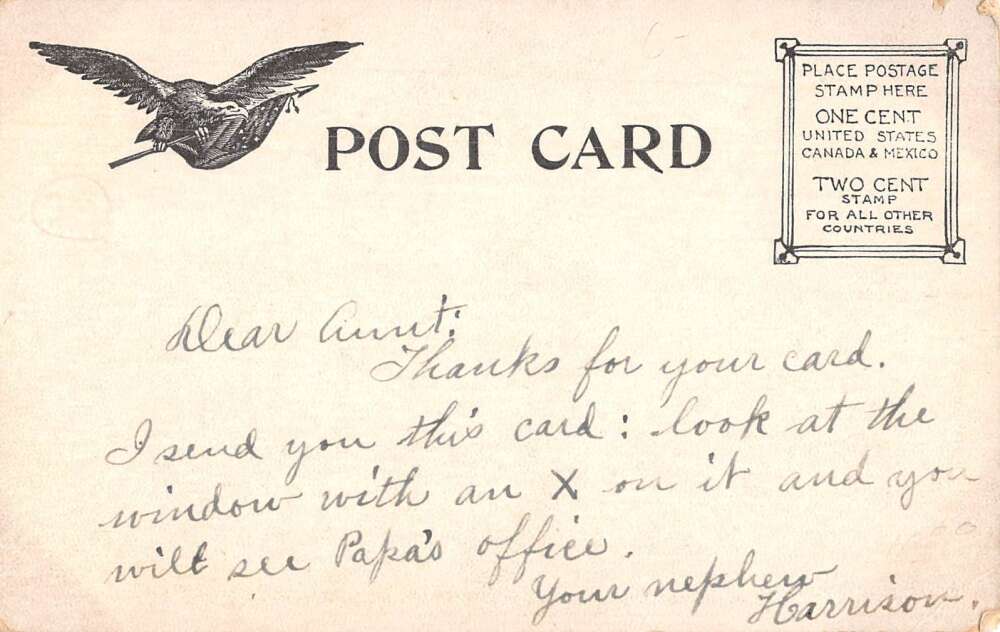 POST CARD
PLACE POSTAGE
STAMP HERE
ONE CENT
UNITED STATES
CANADA & MEXICO
TWO CENT
STAMP
FOR ALL OTHER
COUNTRIES
Dear Aunt:
Thanks for your card.
I send you this card: look at the
window with an X on it and you
will see Papa's office.
Your nephew
Harrison.